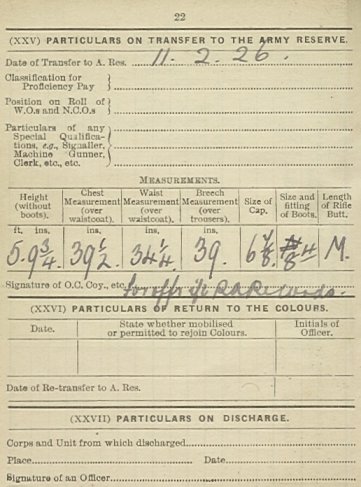 22
(XXV) PARTICULARS ON TRANSFER TO THE ARMY RESERVE.
Date of Transfer to A. Res. 11. 2. 26.
Classification for
Proficiency Pay
Position on Roll of
W.O.s and N.C.O.s
Particulars of any
Special Qualifica-
tions, e.g., Signaller,
Machine Gunner,
Clerk, etc., etc.
MEASUREMENTS.
Height (without boots). Chest Measurement (over waistcoat). Waist Measurement (over waistcoat). Breech Measurement (over trousers). Size of Cap. Size and fitting of Boots. Length of Rifle Butt.
ft. ins. ins. ins. ins.
5. 9 3/4. 39 1/2. 34 1/4. 39. 8 M.
Signature of O.C. Coy., etc. Records.
(XXVI) PARTICULARS OF RETURN TO THE COLOURS.
Date. State whether mobilised or permitted to rejoin Colours. Initials of Officer.
Date of Re-transfer to A. Res.
(XXVII) PARTICULARS ON DISCHARGE.
Corps and Unit from which discharged
Place Date
Signature of an Officer